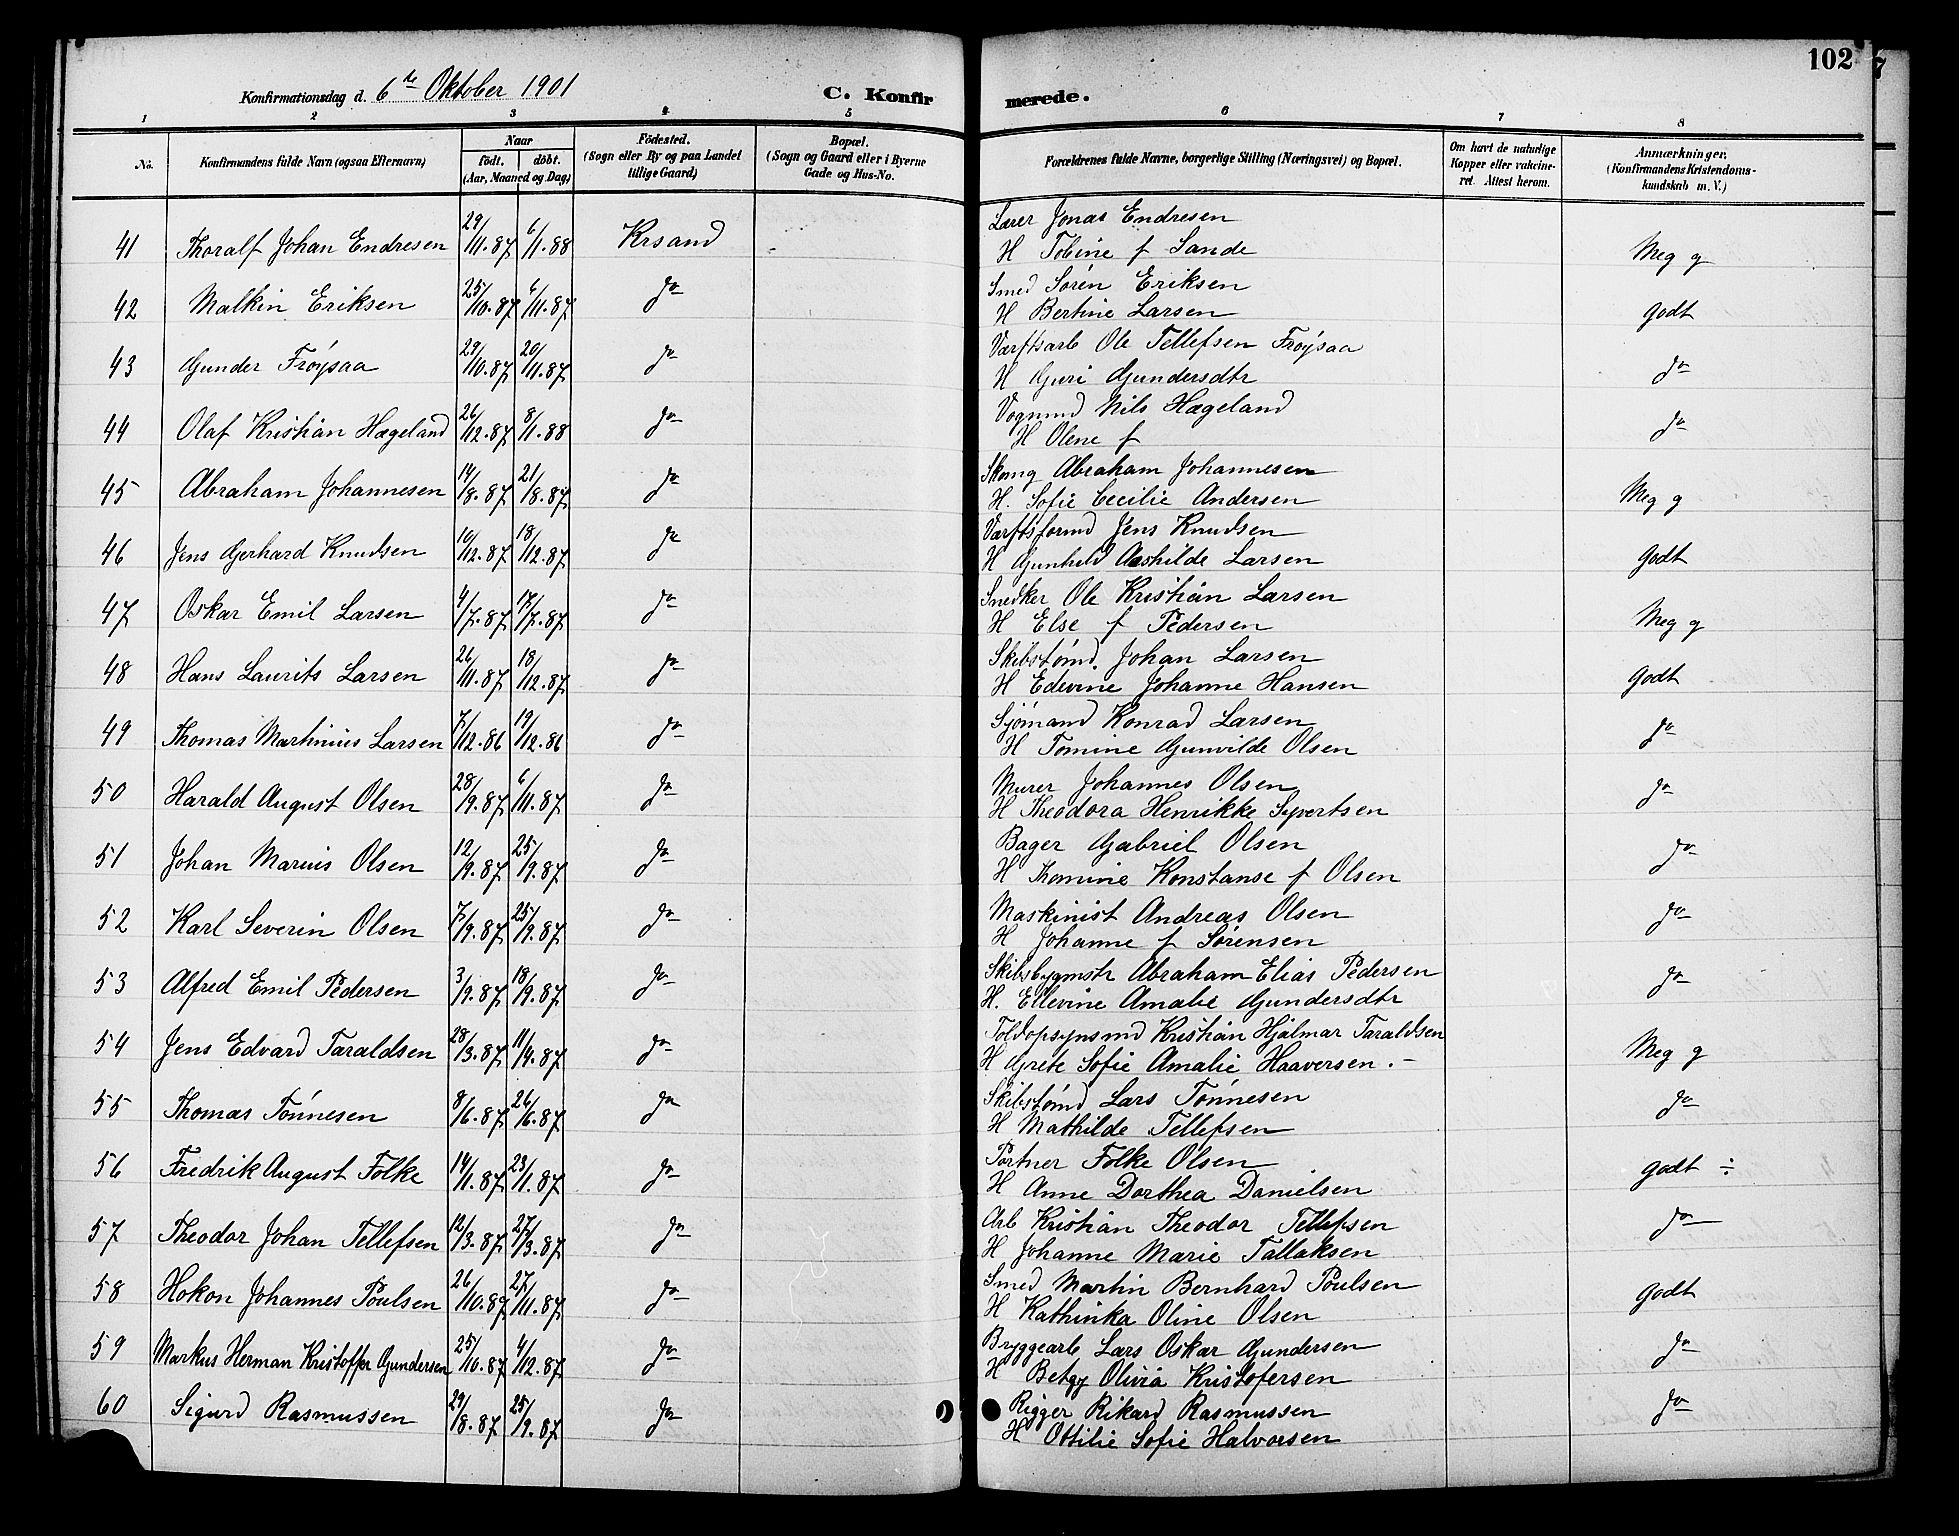 102
Konfirmationsdag d. 6te Oktober 1901
C. Konfirmerede.
1 2 3 4 5 6 7 8
No. Konfirmandens fulde Navn (ogsaa Efternavn) Naar födt. döbt. (Aar, Maaned og Dag) Födested. (Sogn eller By og paa Landet tillige Gaard) Bopæl. (Sogn og Gaard eller i Byerne Gade og Hus-No. Forældrenes fulde Navne, borgerlige Stilling (Næringsvei) og Bopæl. Om havt de naturlige Kopper eller vakcineret. Attest herom. Anmærkninger. (Konfirmandens Kristendomskundskab m. V.)
41 Thoralf Johan Endresen 29/11.87 6/1.88 Krsand Lærer Jonas Endresen
H Tobine f Sande Meg g
42 Malkin Eriksen 25/10.87 6/11.87 do Smed Sören Eriksen
H Bertine Larsen godt
43 Gunder Fröysaa 29/10.87 20/11.87 do Værftsarb Ole Tellefsen Fröysaa
H Guri Gundersdtr do
44 Olaf Kristian Hægeland 26/12.87 8/1.88 do Vognmd Nils Hægeland
H Olene f do
45 Abraham Johannesen 14/8.87 21/8.87 do Skomg Abraham Johannesen
H. Sofie Cecilie Andersen Meg g
46 Jens Gerhard Knudsen 10/12.87 18/12.87 do Værftsformd Jens Knudsen
H Gunhild Aashilde Larsen godt
47 Oskar Emil Larsen 4/7.87 17/7.87 do Snedker Ole Kristian Larsen
H Else f Pedersen Meg g
48 Hans Laurits Larsen 26/11.87 18/12.87 do Skibstömd. Johan Larsen
H Edevine Johanne Hansen godt
49 Thomas Martinius Larsen 7/12.86 19/12.86 do Sjömand Konrad Larsen
H Tomine Gunvilde Olsen do
50 Harald August Olsen 28/9.87 6/11.87 do Murer Johannes Olsen
H Theodora Henrikke Syvertsen do
51 Johan Marius Olsen 12/9.87 25/9.87 do Bager Gabriel Olsen
H Thomine Konstanse f Olsen do
52 Karl Severin Olsen 7/9.87 25/9.87 do Maskinist Andreas Olsen
H Johanne f Sørensen do
53 Alfred Emil Pedersen 3/9.87 18/9.87 do Skibsbygmstr Abraham Elias Pedersen
H. Ellevine Amalie Gundersdtr do
54 Jens Edvard Taraldsen 28/3.87 11/4.87 do Toldopsynsmd Kristian Hjalmar Taraldsen
H Grete Sofie Amalie Haaversen .- Meg g
55 Thomas Tönnesen 8/6.87 26/6.87 do Skibstömd Lars Tönnesen
H Mathilde Tellefsen do
56 Fredrik August Folke 14/1.87 23/1.87 do Portner Folke Olsen
H Anne Dorthea Danielsen godt ÷
57 Theodor Johan Tellefsen 12/3.87 27/3.87 do Arb Kristian Theodor Tellefsen
H Johanne Marie Tallaksen do
58 Hokon Johannes Poulsen 26/10.87 27/11.87 do Smed Martin Bernhard Poulsen
H Kathinka Oline Olsen godt
59 Markus Herman Kristoffer Gundersen 25/10.87 4/12.87 do Bryggearb Lars Oskar Gundersen
H Betzy Olivia Kristofersen do
60 Sigurd Rasmussen 29/8.87 25/9.87 do Rigger Rikard Rasmussen
H Ottilie Sofie Halvorsen do